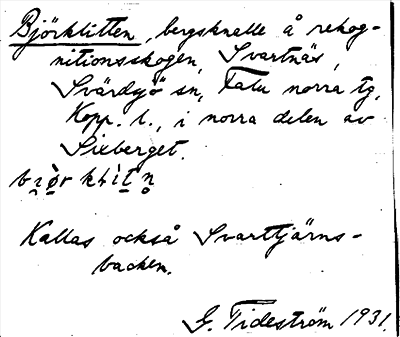 Björklitten, bergsknalle å rekog-
nitionsskogen Svartnäs,
Svärdsjö sn, Falu norra tg,
Kopp. l., i norra delen av
Sixberget.
Kallas också Svarttjärns-
backen.
G. Tideström 1931.